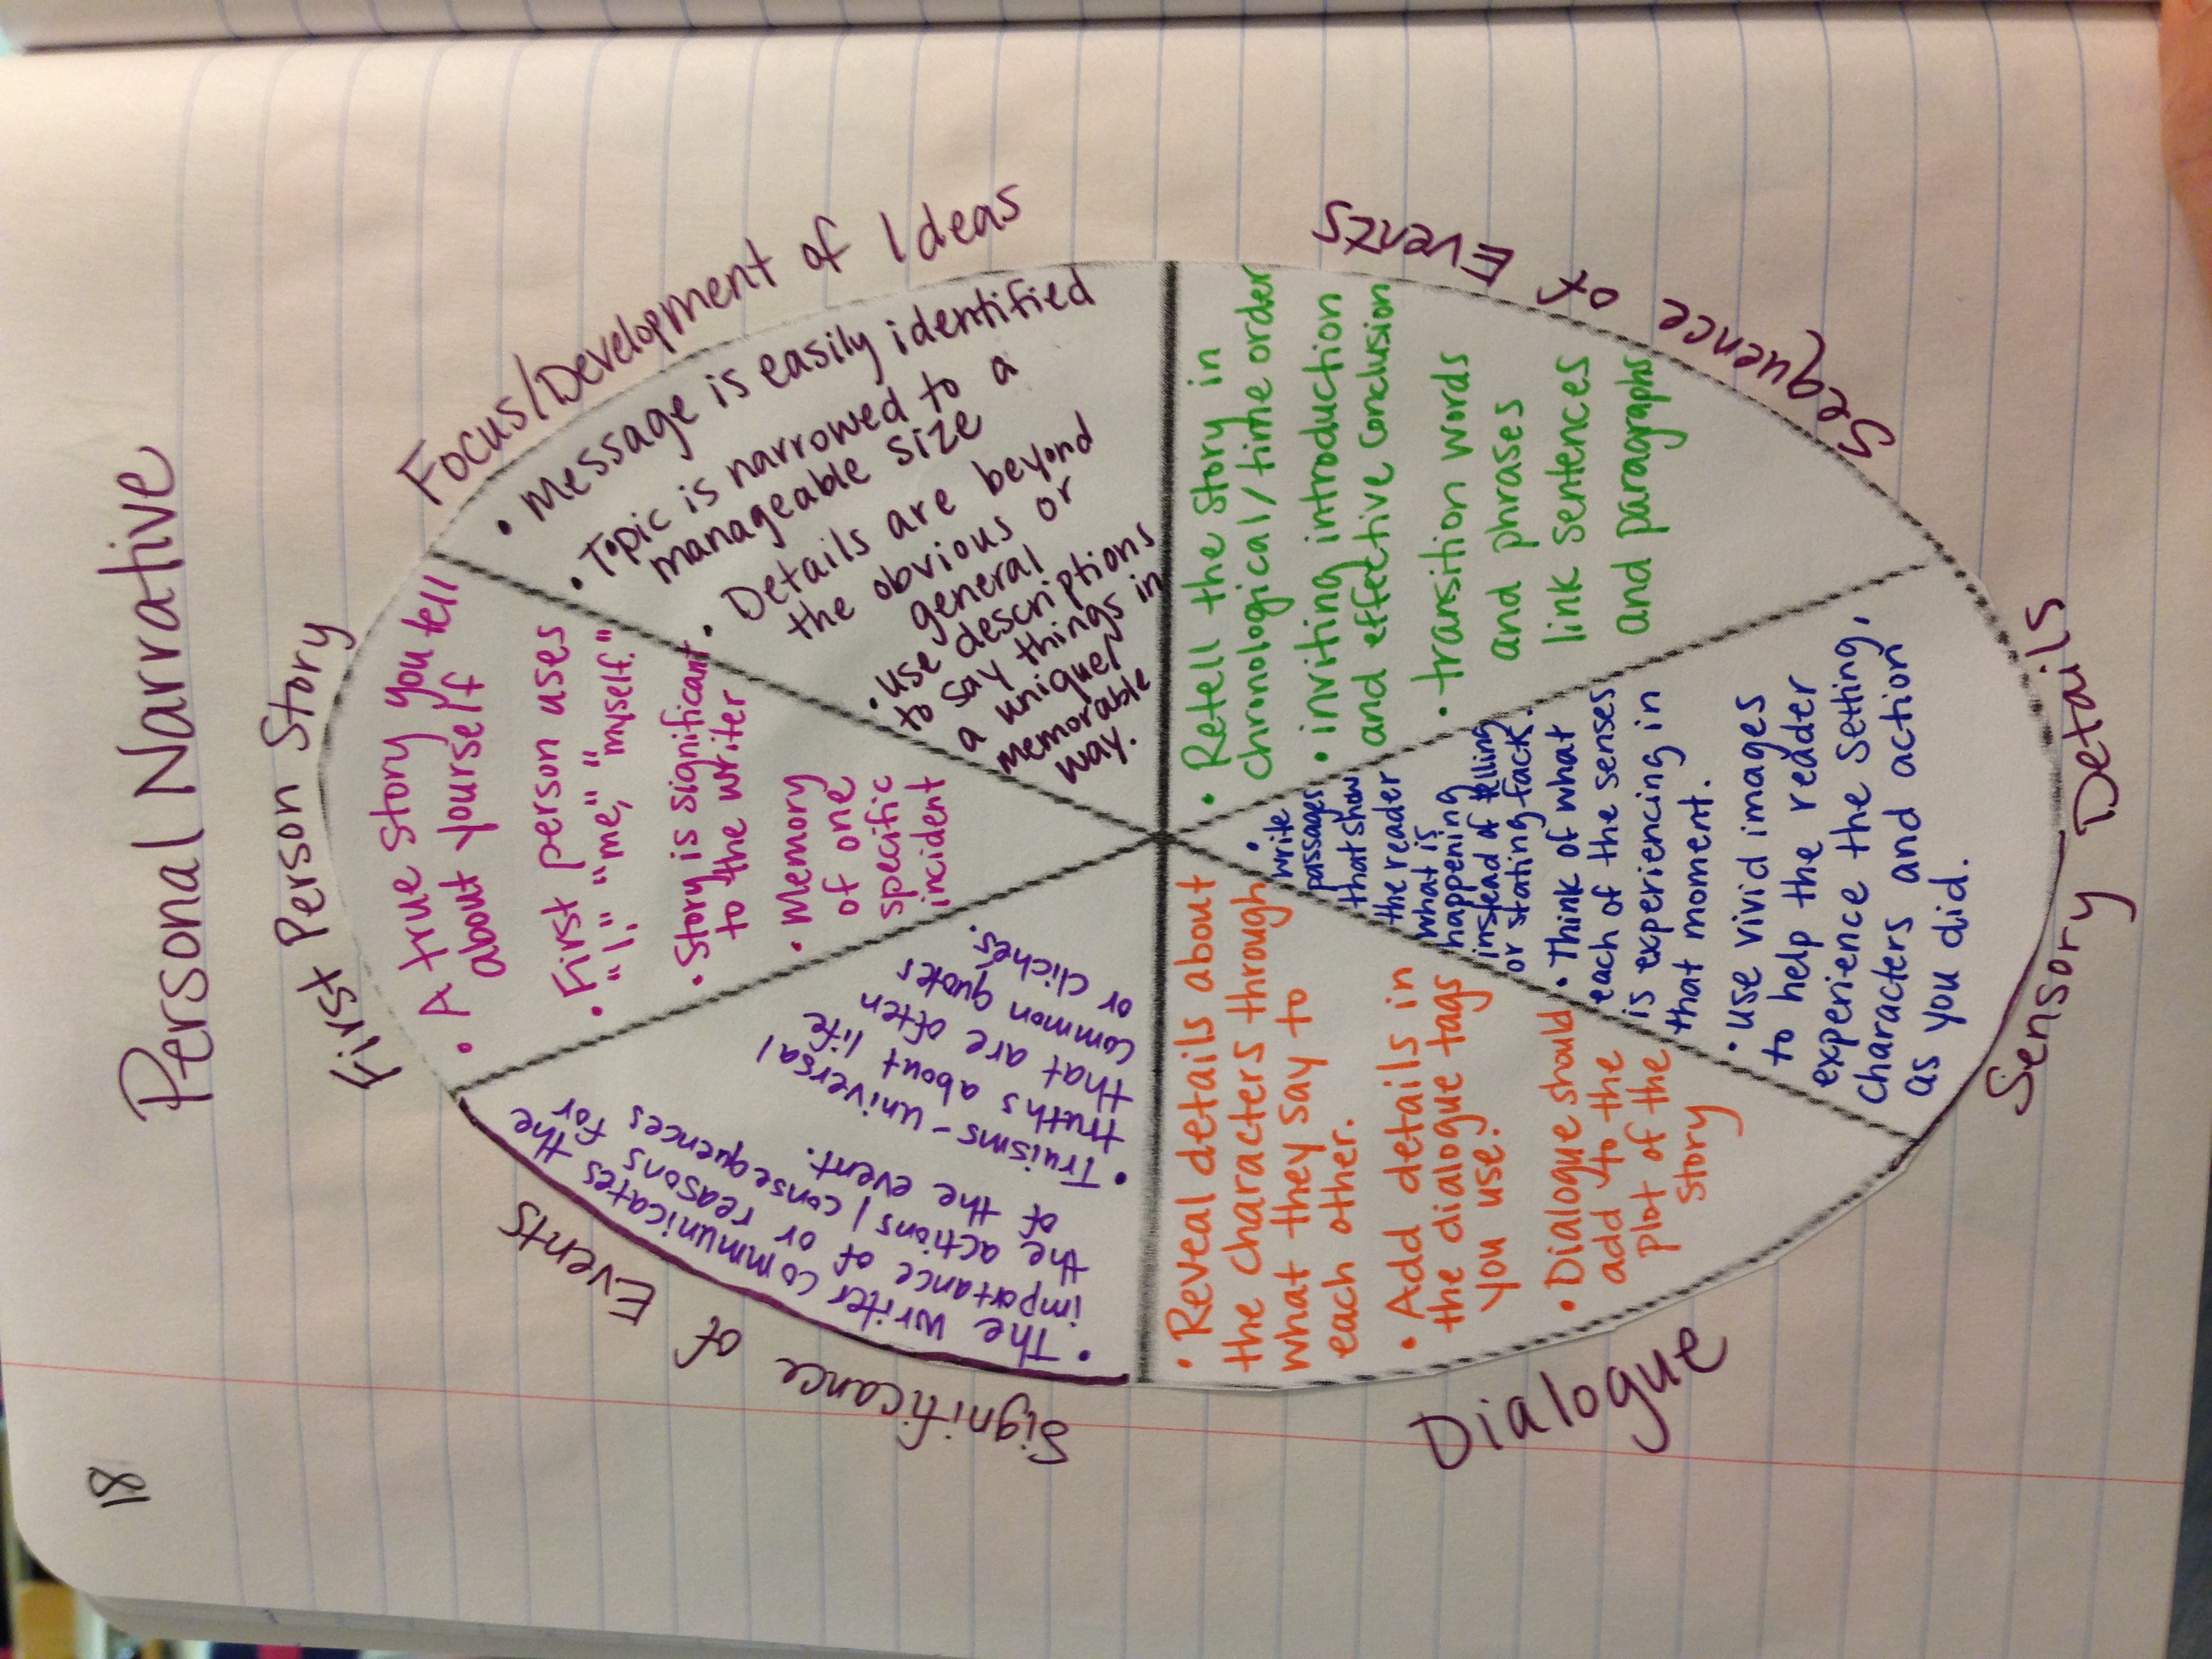 18
Personal Narrative
First Person Story
• A true story you tell
about yourself
• First person uses
"I," "me," "myself."
• Story is significant
to the writer
• Memory
of one
specific
incident
Focus/Development of Ideas
• Message is easily identified
• Topic is narrowed to a
manageable size
• Details are beyond
the obvious or
general
• use descriptions
to say things in
a unique/
memorable
way.
Sequence of Events
• Retell the story in
chronological/time order
• inviting introduction
and effective conclusion
• transition words
and phrases
link sentences
and paragraphs
Sensory Details
• write
passages
that show
the reader
what is
happening
instead of telling
or stating fact.
• Think of what
each of the senses
is experiencing in
that moment.
• use vivid images
to help the reader
experience the setting,
characters and action
as you did.
Dialogue
• Reveal details about
the characters through
what they say to
each other.
• Add details in
the dialogue tags
you use.
• Dialogue should
add to the
plot of the
story
Significance of Events
• The writer communicates the
importance of or reasons for
the actions / consequences
of the event.
• Truisms - universal
truths about life
that are often
common quotes
or clichés.